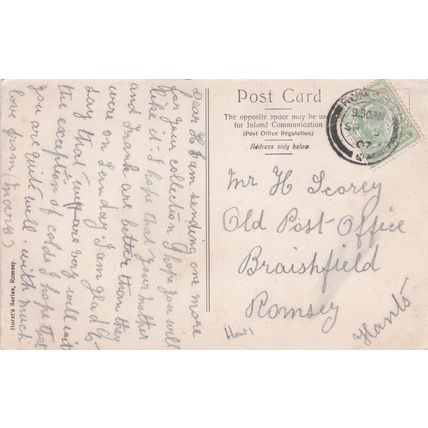 Dear H I am sending one more
for your collection I hope you will
like it - I hope that your mother
and Frank are better than they
were on Sunday. I am glad to
say that we are very well with
the exception of colds I hope that
you are quite well, with much
love from
Hurst's Series, Romsey
Post Card
The opposite space may be us
for Inland Communication
(Post Office Regulation)
Address only below
ROMS
9.30AM
SE
07
Mr H Scorey
Old Post Office
Braishfield
Romsey
Hants
Hants